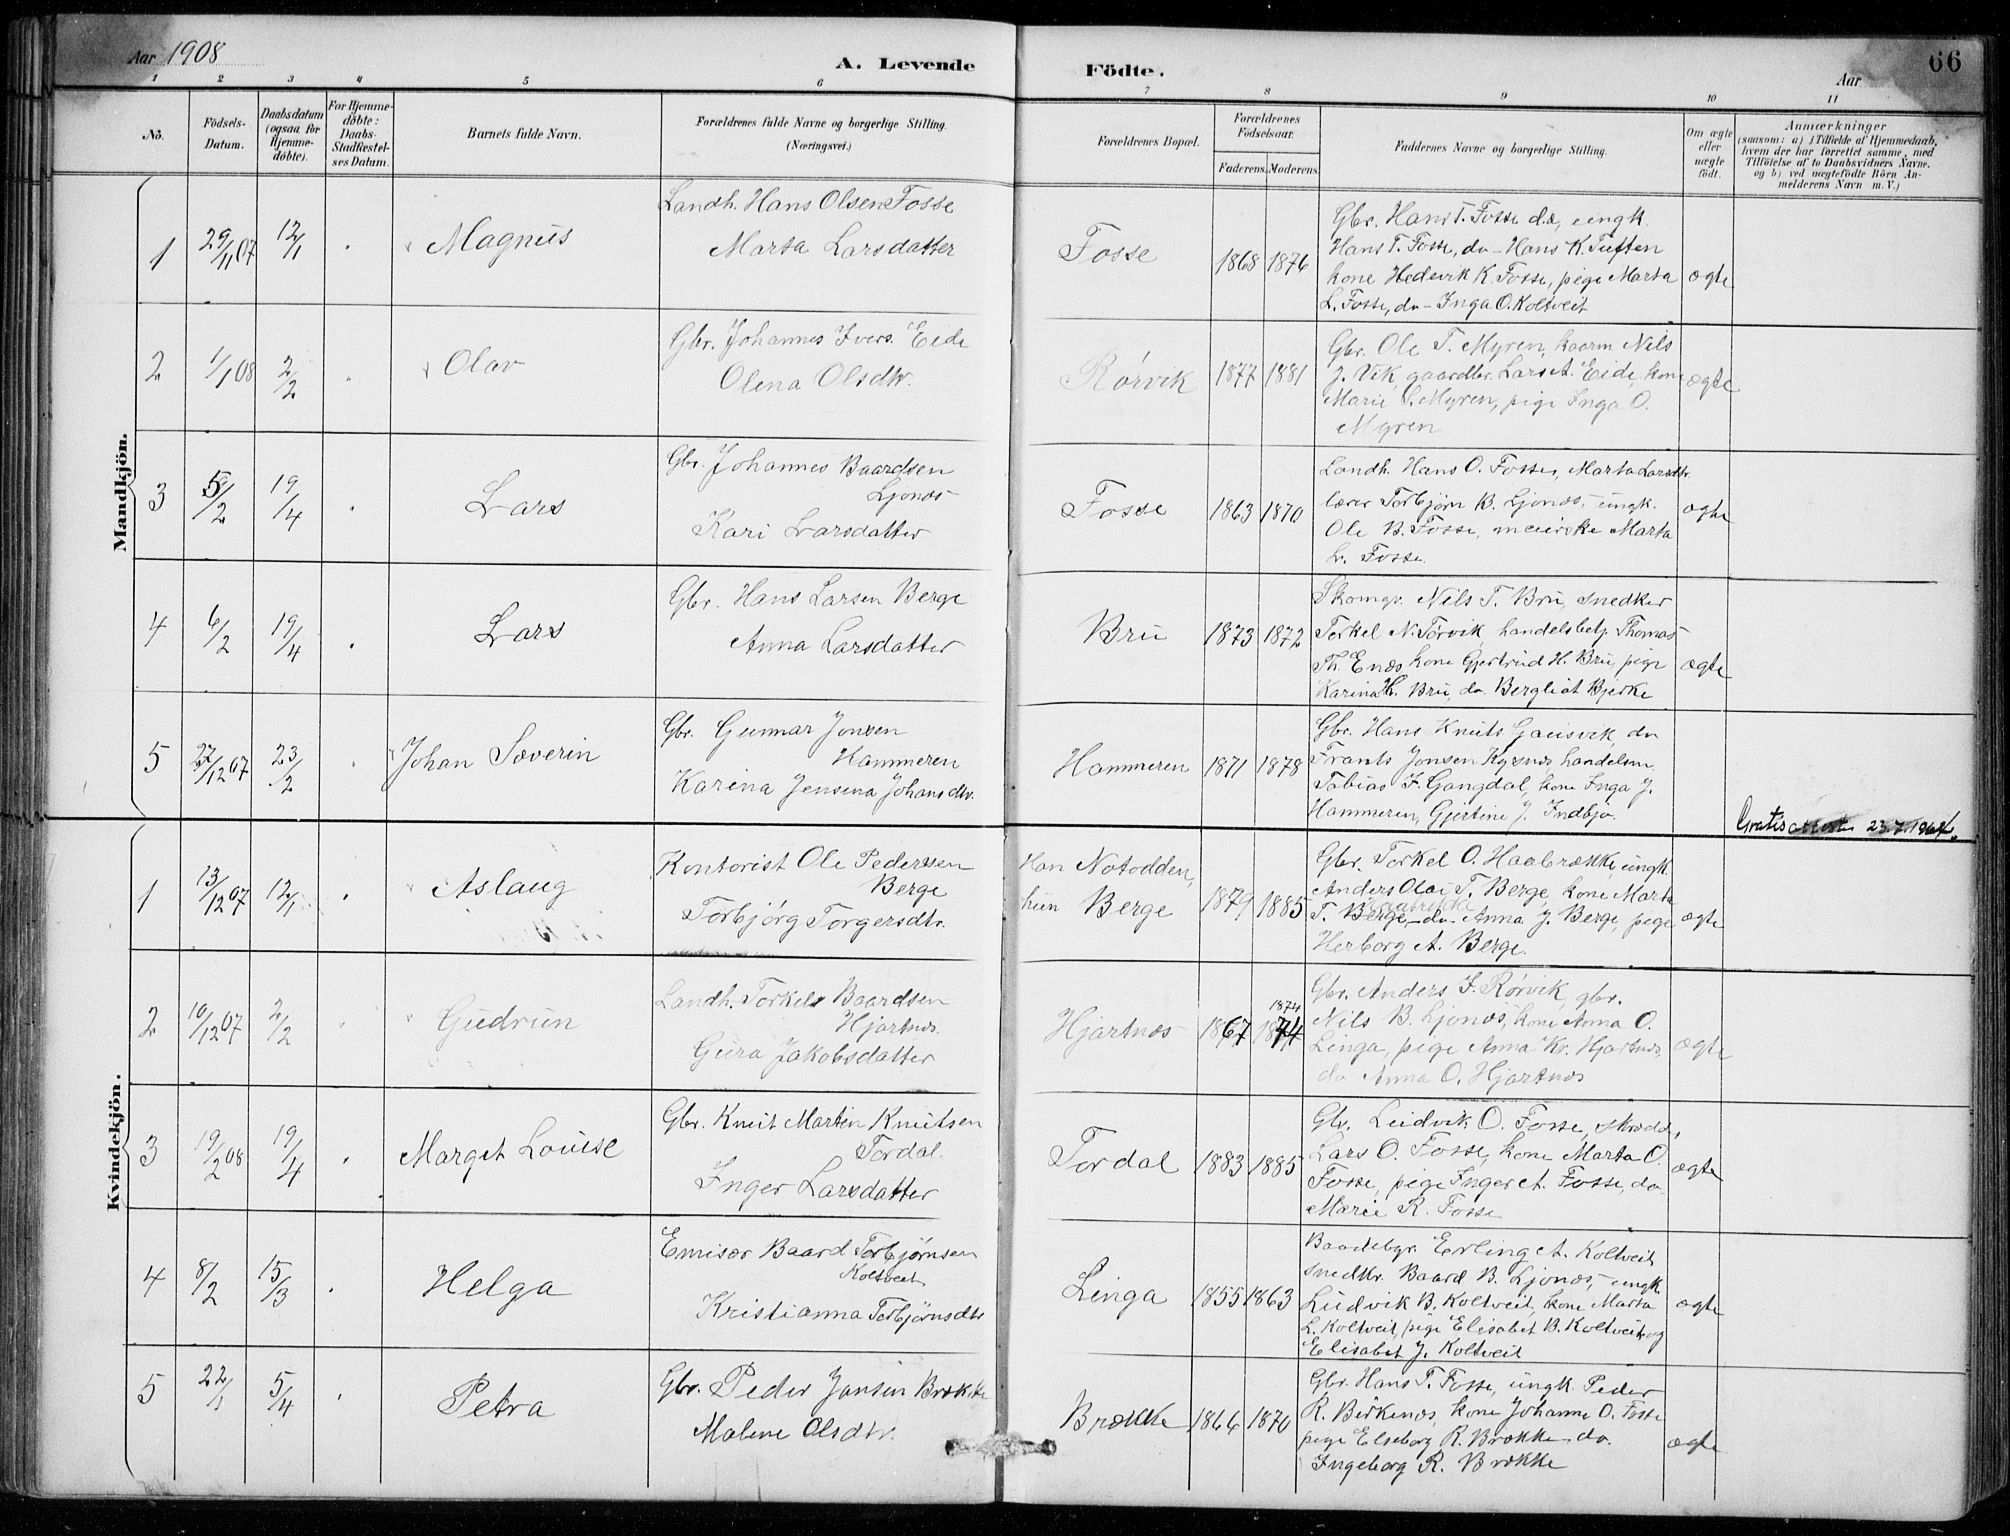 Aar 1908
A. Levende
Födte.
Aar
66
1 2 3 4 5 6 7 8 9 10 11
No.
Födsels-
Datum.
Daabsdatum
(ogsaa for
Hjemme-
döbte).
For Hjemme-
döbte:
Daabs-
Stadfæstel-
ses Datum.
Barnets fulde Navn.
Forældrenes fulde Navne og borgerlige Stilling.
(Næringsvei.)
Forældrenes Bopæl.
Forældrenes
Födselsaar.
Faderens. Moderens.
Faddernes Navne og borgerlige Stilling.
Om ægte
eller
uægte
födt.
Anmærkninger
(saasom: a) i Tilfælde af Hjemmedaab,
hvem der har forrettet samme, med
Tilföielse af to Daabsvidners Navne.
og b) ved uægtefödte Börn An-
melderens Navn m. V.)
Mandkjön.
1 29/11 07 12/1 " Magnus
Landh. Hans Olsen Fosse
Marta Larsdatter
Fosse 1868 1876
Gbr. Hans T. Fosse d.æ, ungk.
Hans T. Fosse, do - Hans K. Tuften
kone Hedevik K. Fosse, pige Marta
L. Fosse, do - Inga O. Koltveit
ægte
2 1/1 08 2/2 " Olav
Gbr. Johannes Ivers. Eide
Olena Olsdtr.
Rørvik 1877 1881
Gbr. Ole T. Myren, kaarm Nils
J. Vik, gaardbr. Lars A. Eide, kone
Marie S. Myren, pige Inga O.
Myren
ægte
3 5/2 19/4 " Lars
Gbr. Johannes Baardsen
Ljonæs
Kari Larsdatter
Fosse 1863 1870
Landh. Hans O. Fosse, Marta Larsdtr.
lærer Torbjørn B. Ljonæs, ungk.
Ole B. Fosse, meierske Marta
L. Fosse.
ægte
4 6/2 19/4 " Lars
Gbr. Hans Larsen Berge
Anna Larsdatter
Bru 1873 1872
Skomgr. Nils T. Bru, snedker
Terkel N. Tørvik handelsbetj. Thomas
Th. Enæs kone Gjertrud H. Bru, pige
Karina H. Bru, do. Bergliot Bjerke
ægte
5 27/12 07 23/2 " Johan Severin
Gbr. Gunnar Jonsen
Hammeren
Karina Jensina Johansdtr.
Hammeren 1871 1878
Gbr. Hans Knuts Gausvik, do
Frants Jonsen Kysnæs handelsm.
Tobias F. Gangdal, kone Inga J.
Hammeren, Gjertine J. Indbjo.
Gratisattest 23.7.1964.
Kvindekjön.
1 13/12 07 12/1 " Aslaug
Kontorist Ole Pedersen
Berge
Torbjörg Torgersdtr.
Han Notodden,
hun Berge 1879 1885
Gbr. Torkel O. Haabrække ungk.
Anders Olai T. Berge, kone Marta
T. Berge, do - Anna J. Berge, pige
Herborg A. Berge.
ægte
2 10/12 07 2/2 " Gudrun
Landh. Torkels Baardsen
Hjartnæs
Gura Jakobsdatter
Hjartnæs 1867 1874
Gbr. Anders I. Rørvik, gbr.
Nils B. Ljonæs, kone Anna O.
Linga, pige Anna Kr. Hjartnæs,
do Anna O. Hjartnæs
ægte
3 19/2 08 19/4 " Marget Louise
Gbr. Knut Martin Knutsen
Tordal.
Inger Larsdatter
Tordal 1883 1885
Gbr. Ludvik O. Fosse, skræd.,
Lars O. Fosse, kone Marta O.
Fosse, pige Inger A. Fosse, do
Marie R. Fosse
ægte
4 8/2 15/3 " Helga
Emisær Baard Torbjørnsen
Koltveit
Kristianna Torbjørnsdtr
Linga 1855 1863
Baadebgr. Erling A. Koltveit
snedkr. Baard B. Ljonæs, ungk
Ludvik B. Koltveit, kone Marta
L. Koltveit, pige Elisabet B. Koltveit og
Elisabet J. Koltveit
ægte
5 22/1 5/4 " Petra
Gbr. Peder Jansen Brække
Malene Olsdtr.
Brække 1866 1870
Gbr. Hans T. Fosse, ungk. Peder
R. Birkenæs, kone Johanne O. Fosse
pige Elseborg R. Brække, do.
Ingeborg R. Brække
ægte